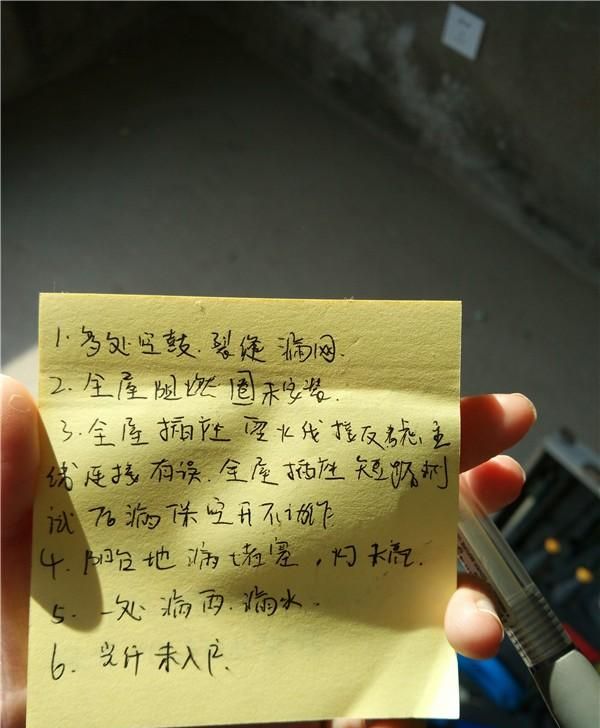 1. 多处空鼓. 裂缝 漏网.
2. 全屋阻燃圈未安装.
3. 全屋插座零火线接反 主
线连接有误. 全屋插座短路测
试 后漏保空开不动作
4. 阳台地漏堵塞, 灯未亮.
5. 一处漏雨. 漏水.
6. 光纤未入户.